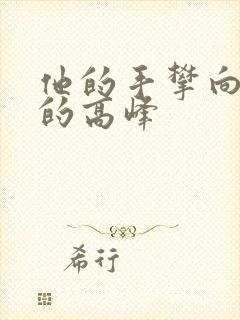 他的手攀向
的高峰
希行